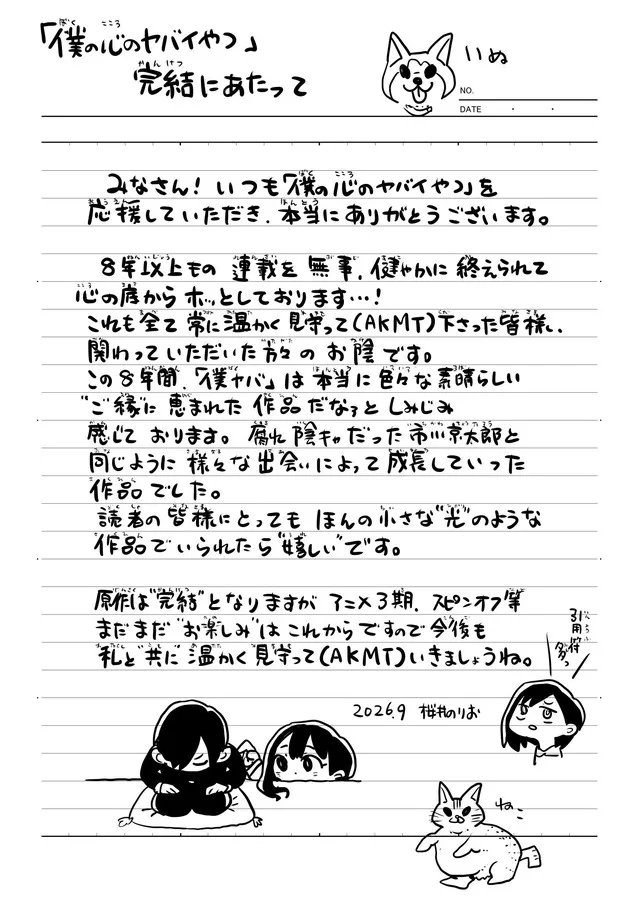 「僕の心のヤバイやつ」
完結にあたって
いぬ
NO.
DATE ・ ・
みなさん!いつも「僕の心のヤバイやつ」を
応援していただき、本当にありがとうございます。
8年以上もの連載を無事、健やかに終えられて
心の底からホッとしております…!
これも全て常に温かく見守って(AKMT)下さった皆様、
関わっていただいた方々のお陰です。
この8年間、「僕ヤバ」は本当に色々な素晴らしい
"ご縁"に恵まれた作品だなぁとしみじみ
感じております。腐れ陰キャだった市川京太郎と
同じように様々な出会いによって成長していった
作品でした。
読者の皆様にとってもほんの小さな"光"のような
作品でいられたら"嬉しい"です。
原作は"完結"となりますがアニメ3期、スピンオフ等
まだまだ"お楽しみ"はこれからですので今後も
私と"共に"温かく見守って(AKMT)いきましょうね。
引用符
多っ
2026.9 桜井のりお
ねこ